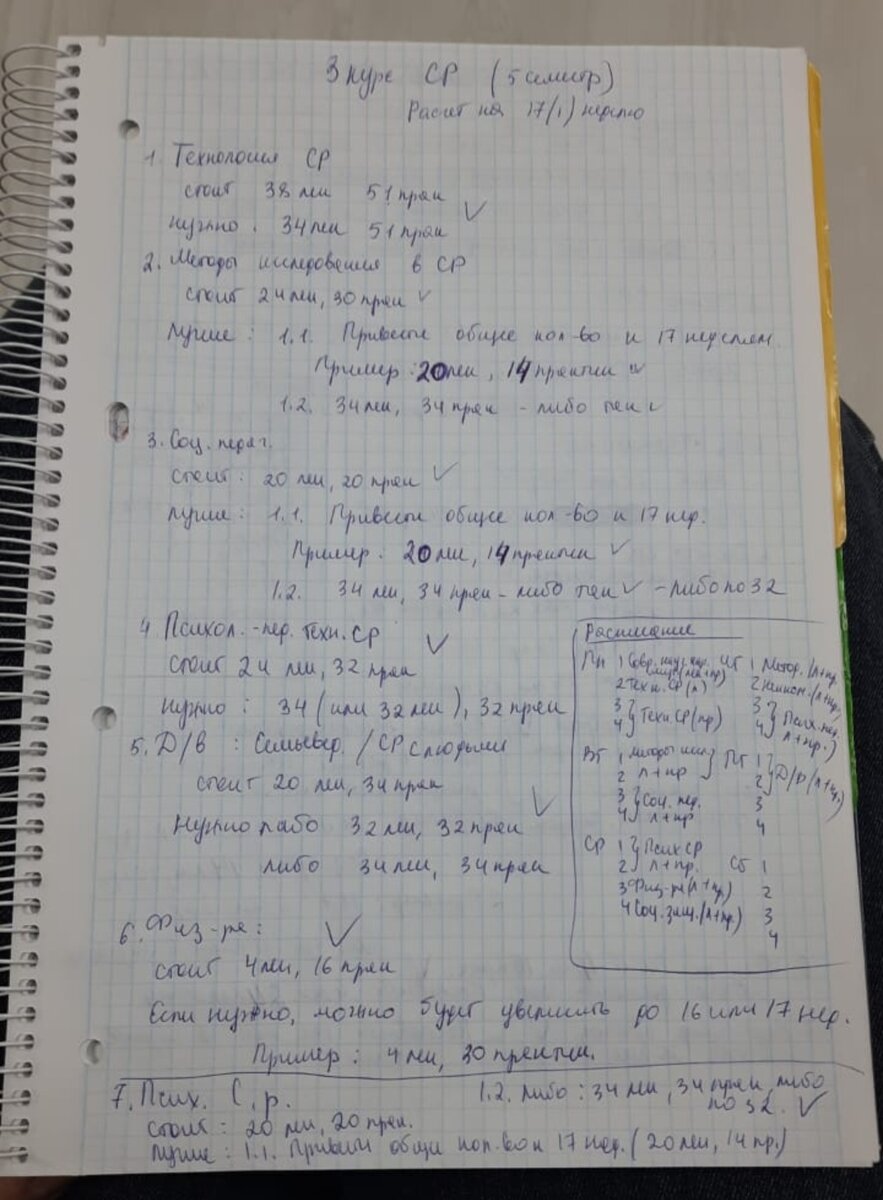 3 курс СР (5 семестр)
Расчет на 17(1) неделю
1. Технология СР
стоит 38 лек 51 прак
нужно : 34 лек 51 прак
2. Методы исследования в СР
стоит 24 лек, 30 прак
Лучше : 1.1. Привести общее кол-во к 17 неделям.
Пример : 20 лек, 14 практик
1.2. 34 лек, 34 прак - либо
3. Соц. педаг.
стоит : 20 лек, 20 прак
Лучше : 1.1. Привести общее кол-во к 17 нед.
Пример : 20 лек, 14 практик
1.2. 34 лек, 34 прак - либо - либо по 32
4. Психол. - пед. техн. СР
стоит 24 лек, 32 прак
нужно : 34 (или 32 лек), 32 прак
5. Д/В : Семьевед. / СР с людьми
стоит 20 лек, 34 прак
Нужно либо 32 лек, 32 прак
либо 34 лек, 34 прак
6. Физ-ра :
стоит 4 лек, 16 прак
Если нужно, можно будет увеличить до 16 или 17 нед.
Пример : 4 лек, 30 практик.
7. Псих. С.р.
стоит : 20 лек, 20 прак.
Лучше : 1.1. Привести общ кол-во к 17 нед. (20 лек, 14 пр.)
1.2. либо : 34 лек, 34 прак, либо
по 32.
Расписание
Пн 1
2 Техн. СР (л)
3
4 Техн. СР (пр)
Вт 1 Методы иссл.
2 л + пр
3 Соц. пед.
4 л + пр
СР 1 Псих СР
2 л + пр.
3 Физ-ра (л + пр)
4 Соц. защ. (л + пр.)
ЧТ 1 (л + пр.
2 (л + пр)
3 Псих. пед.
4 л + пр.)
ПТ 1
2 Д/В (л + пр.)
3
4
Сб 1
2
3
4